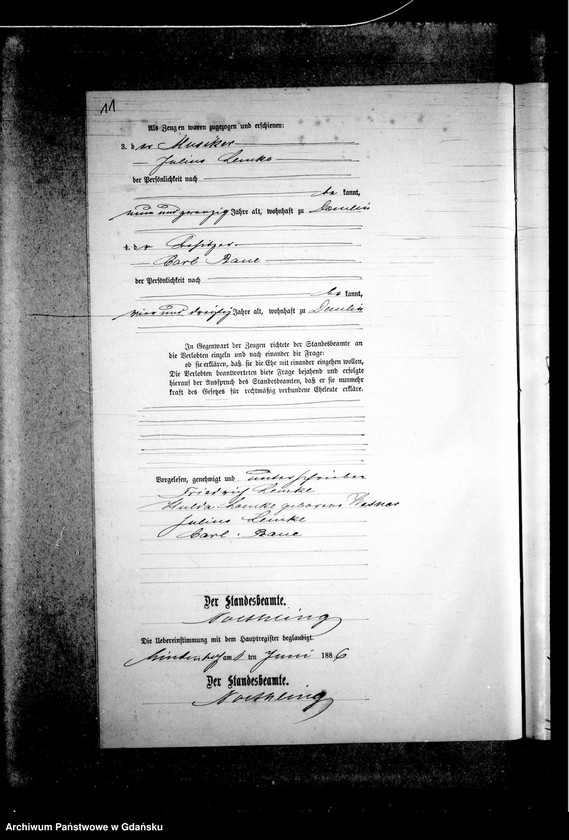 11
Als Zeugen waren zugezogen und erschienen:
3. der Musiker
Julius Lemke
der Persönlichkeit nach
be kannt,
neun und zwanzig Jahre alt, wohnhaft zu Demlin
4. der Besitzer
Carl
der Persönlichkeit nach
be kannt,
vier und dreißig Jahre alt, wohnhaft zu Demlin
In Gegenwart der Zeugen richtete der Standesbeamte an
die Verlobten einzeln und nach einander die Frage:
ob sie erklären, daß sie die Ehe mit einander eingehen wollen,
Die Verlobten beantworteten diese Frage bejahend und erfolgte
hierauf der Ausspruch des Standesbeamten, daß er sie nunmehr
kraft des Gesetzes für rechtmäßig verbundene Eheleute erkläre.
Vorgelesen, genehmigt und unterschrieben
Friedrich Lemke
Hulda Lemke geborene
Julius Lemke
Carl
Der Standesbeamte.
Die Uebereinstimmung mit dem Hauptregister beglaubigt.
am ten Juni 1886
Der Standesbeamte.
Archiwum Państwowe w Gdańsku